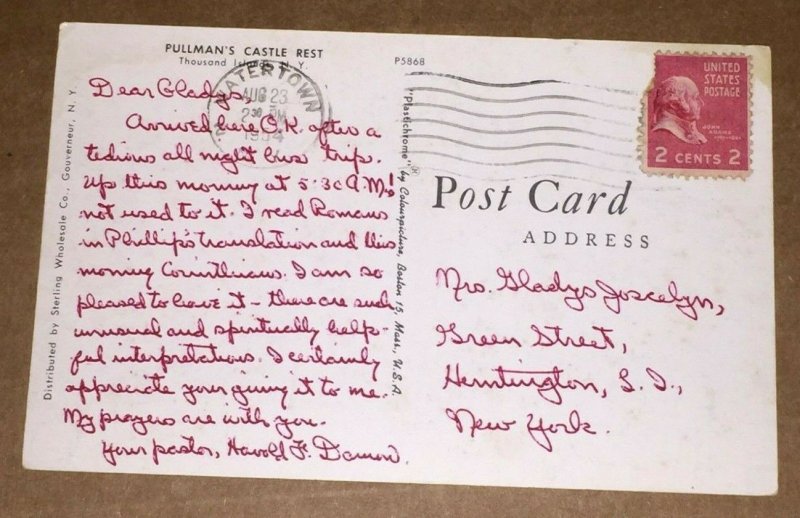 PULLMAN'S CASTLE REST
Thousand Islands, N. Y.
P5868
WATERTOWN
AUG 23
2 30 PM
1954
UNITED
STATES
POSTAGE
JOHN
ADAMS
2 CENTS 2
Dear Gladys,
Arrived here O.K. after a
tedious all night bus trip.
Up this morning at 5:30 A.M.!
not used to it. I read Romans
in Phillip's translation and this
morning Corinthians. I am so
pleased to have it – there are such
unusual and spiritually help-
ful interpretations. I certainly
appreciate your giving it to me.
My prayers are with you.
Your pastor, Harold F. Damon.
Distributed by Sterling Wholesale Co., Gouverneur, N. Y.
"Plastichrome"® by Colourpicture, Boston 15, Mass., U.S.A.
Post Card
ADDRESS
Mrs. Gladys Joscelyn,
Green Street,
Huntington, L. I.,
New York.